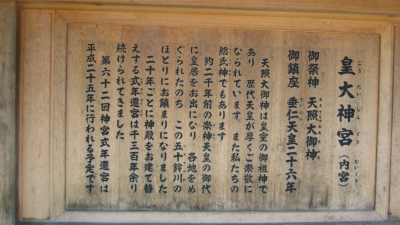 皇大神宮(内宮)
こうたいじんぐう ないくう
御祭神 天照大御神
御鎮座 垂仁天皇二十六年
天照大御神は皇室の御祖神で
あり 歴代天皇が厚くご崇敬に
なられています また私たちの
総氏神でもあります
約二千年前の崇神天皇の御代
に皇居をお出になり 各地をめ
ぐられたのち この五十鈴川の
ほとりにお鎮まりになりました
二十年ごとに神殿をお建て替
えする式年遷宮は千三百年余り
続けられてきました
第六十二回神宮式年遷宮は
平成二十五年に行われる予定です